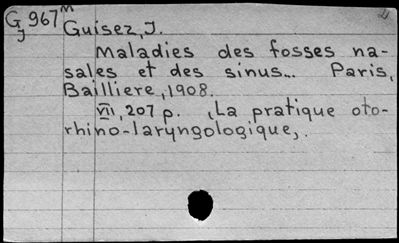 G 967 m Guisez, J.
J
Maladies des fosses na-
sales et des sinus... Paris,
Bailliere, 1908.
VII, 207 p. (La pratique oto-
rhino-laryngologique,.